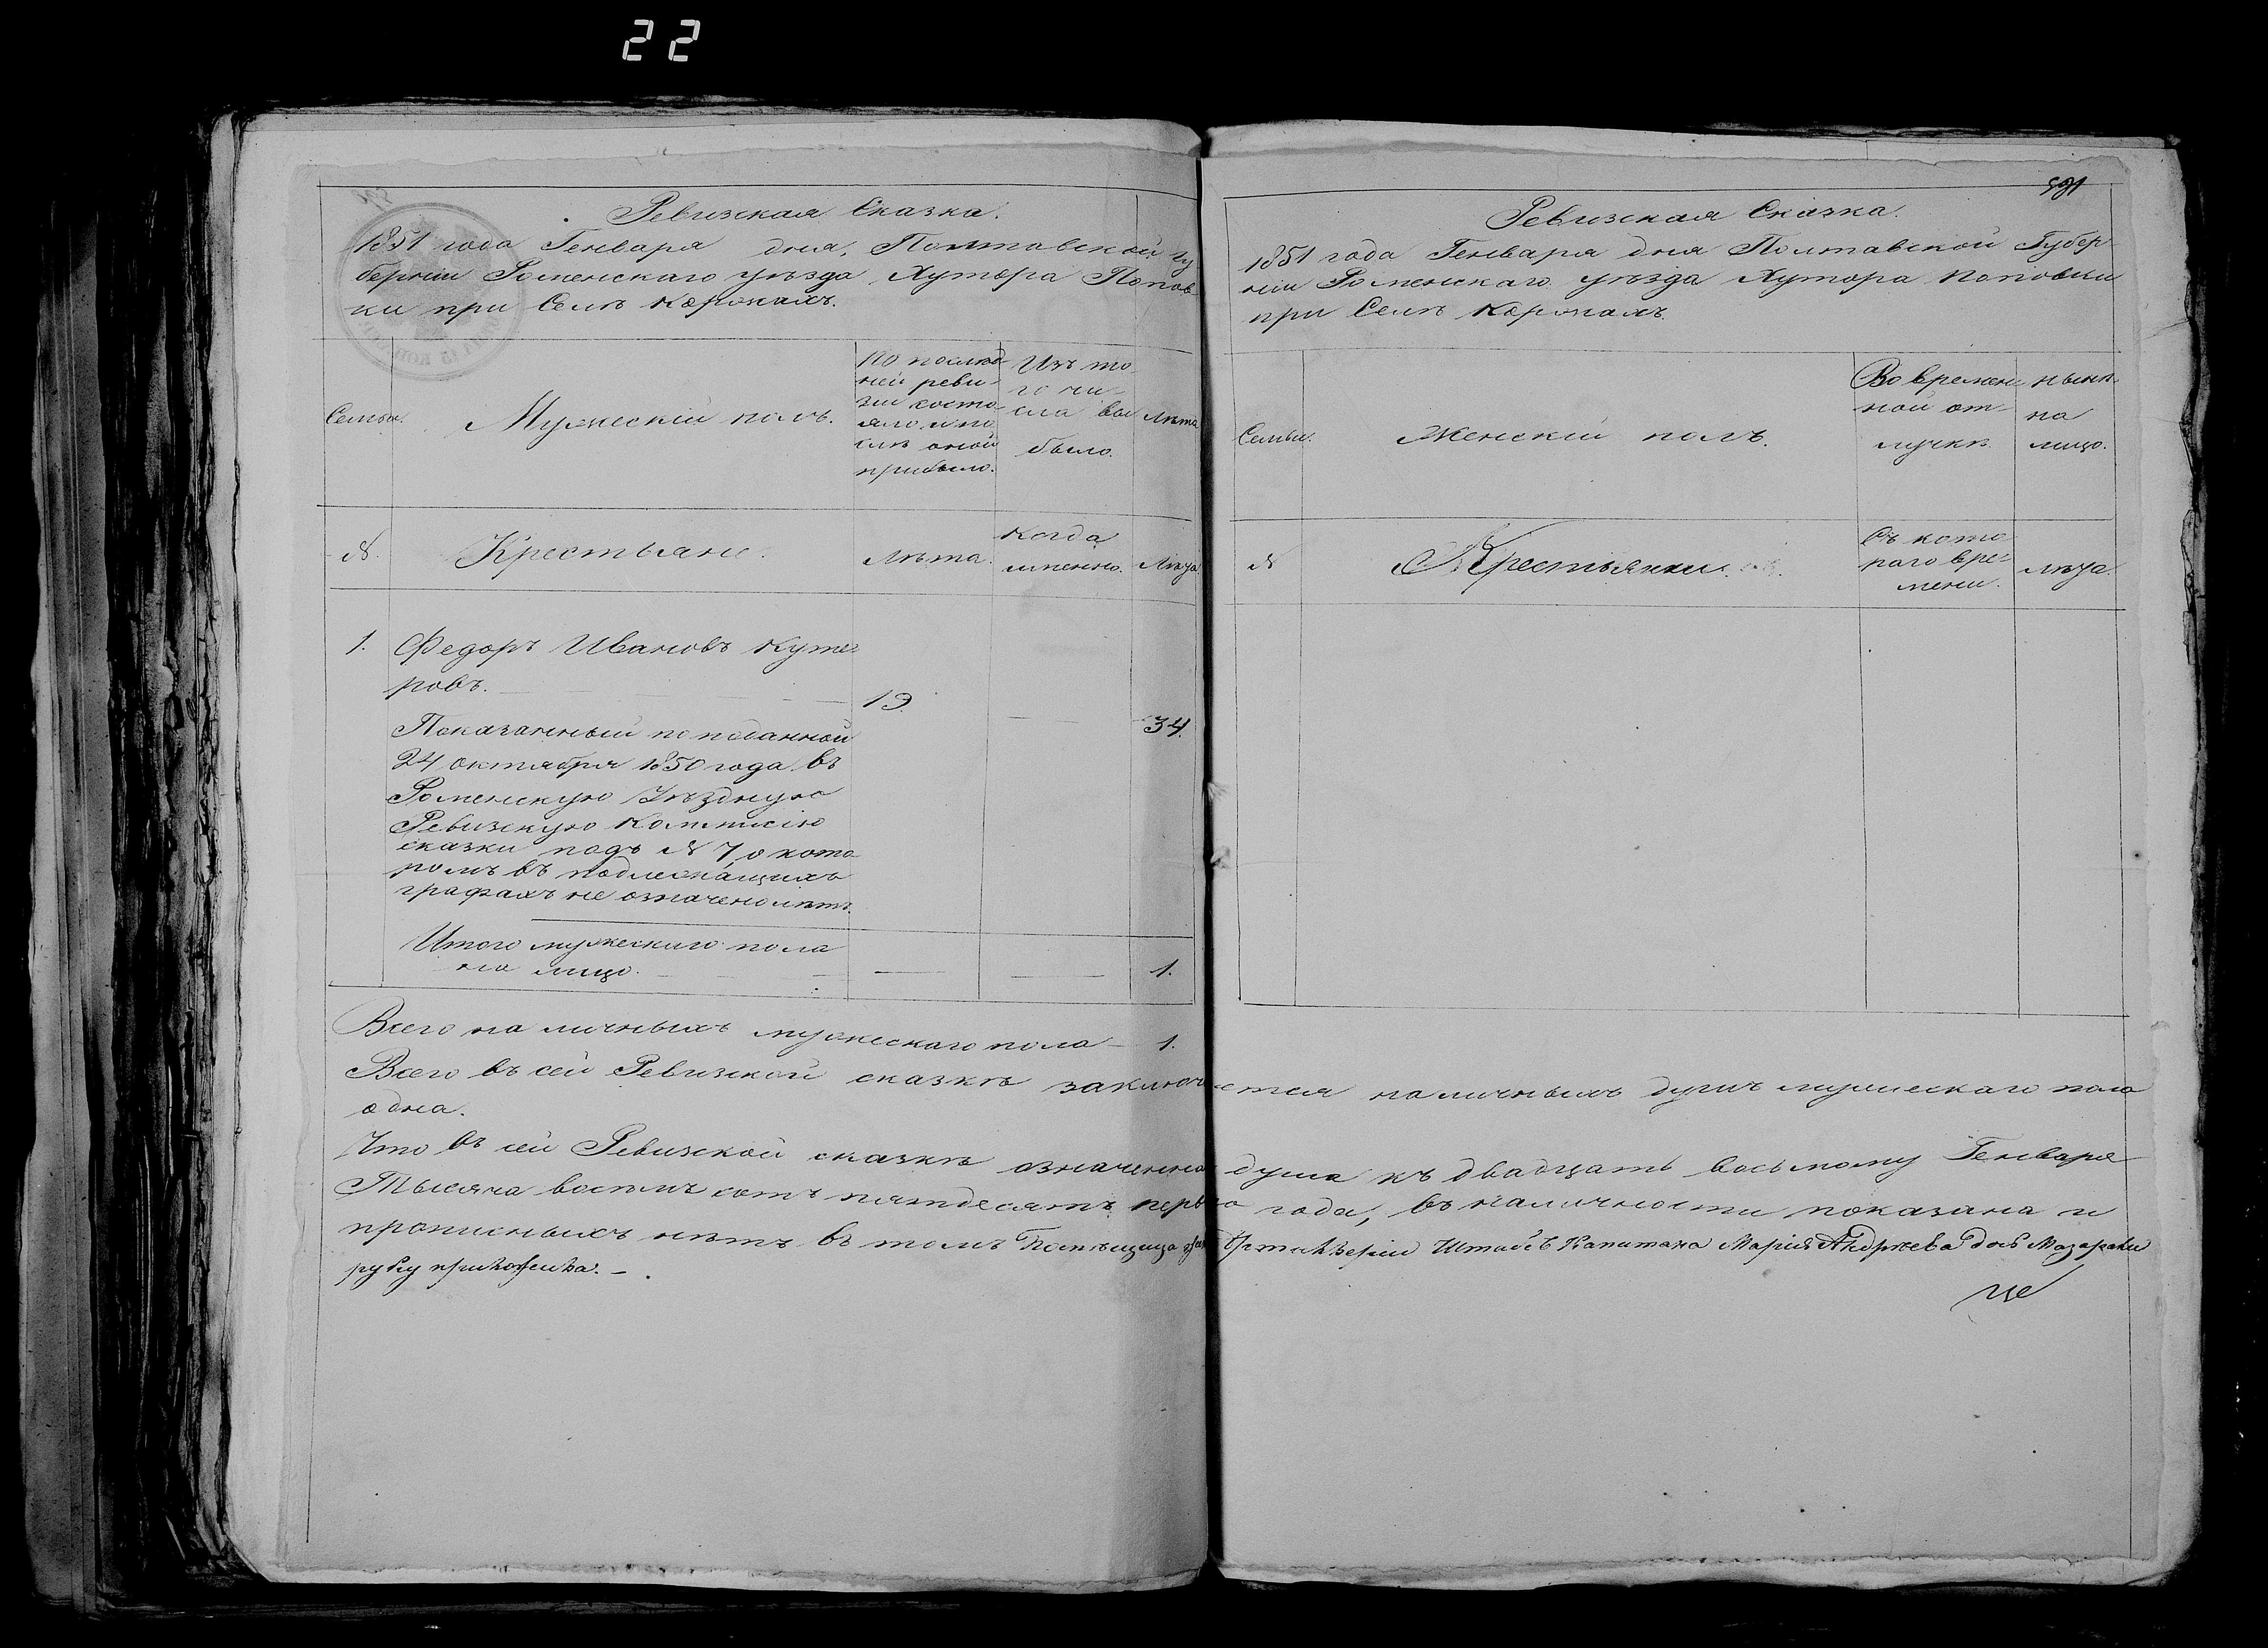 22
Ревизская Сказка.
1851 года Генваря дня, Полтавской Гу
берніи Роменскаго уѣзда, Хутора Попов
ки при Селѣ Коровахъ.
Семьи.
Мужескій полъ.
По послѣд-
ней реви-
зіи состо-
яло и по
слѣ оной
прибыло.
Изъ то-
го чи-
сла вы
было.
Лѣта
№.
Крестьяне.
Лѣта.
Когда
именно.
Лѣта.
1.
Федоръ Ивановъ Куте-
ровъ.
19.
34.
Показанный по поданной
24 октября 1850 года въ
Роменскую Уѣздную
Ревизскую Коммисію
сказки подъ № 7, о кото
ромъ въ подлежащихъ
графахъ не означено лѣтъ.
Итого мужескаго пола
на лицо.
1.
Всего на личныхъ мужескаго пола 1.
591
Ревизская Сказка.
1851 года Генваря дня Полтавской Губер-
ніи Роменскаго уѣзда Хутора Поповки
при Селѣ Коровахъ.
Семьи.
Женскій полъ.
Во времен
ной от-
лучкѣ.
нынѣ
на
лицо.
№
Крестьянки.
Съ кото
раго вре-
мени.
лѣта.
Всего въ сей Ревизской сказкѣ заключается наличныхъ душъ мужескаго пола
одна.
Что въ сей Ревизской сказкѣ означенная душа къ двадцать восьмому Генваря
Тысяча восемь сотъ пятдесятъ перваго года, въ наличности показана и
прописныхъ нѣтъ въ томъ Помѣщица Артиллеріи Штабсъ Капитана Марія Андреева дочь Мазараки
руку приложила.